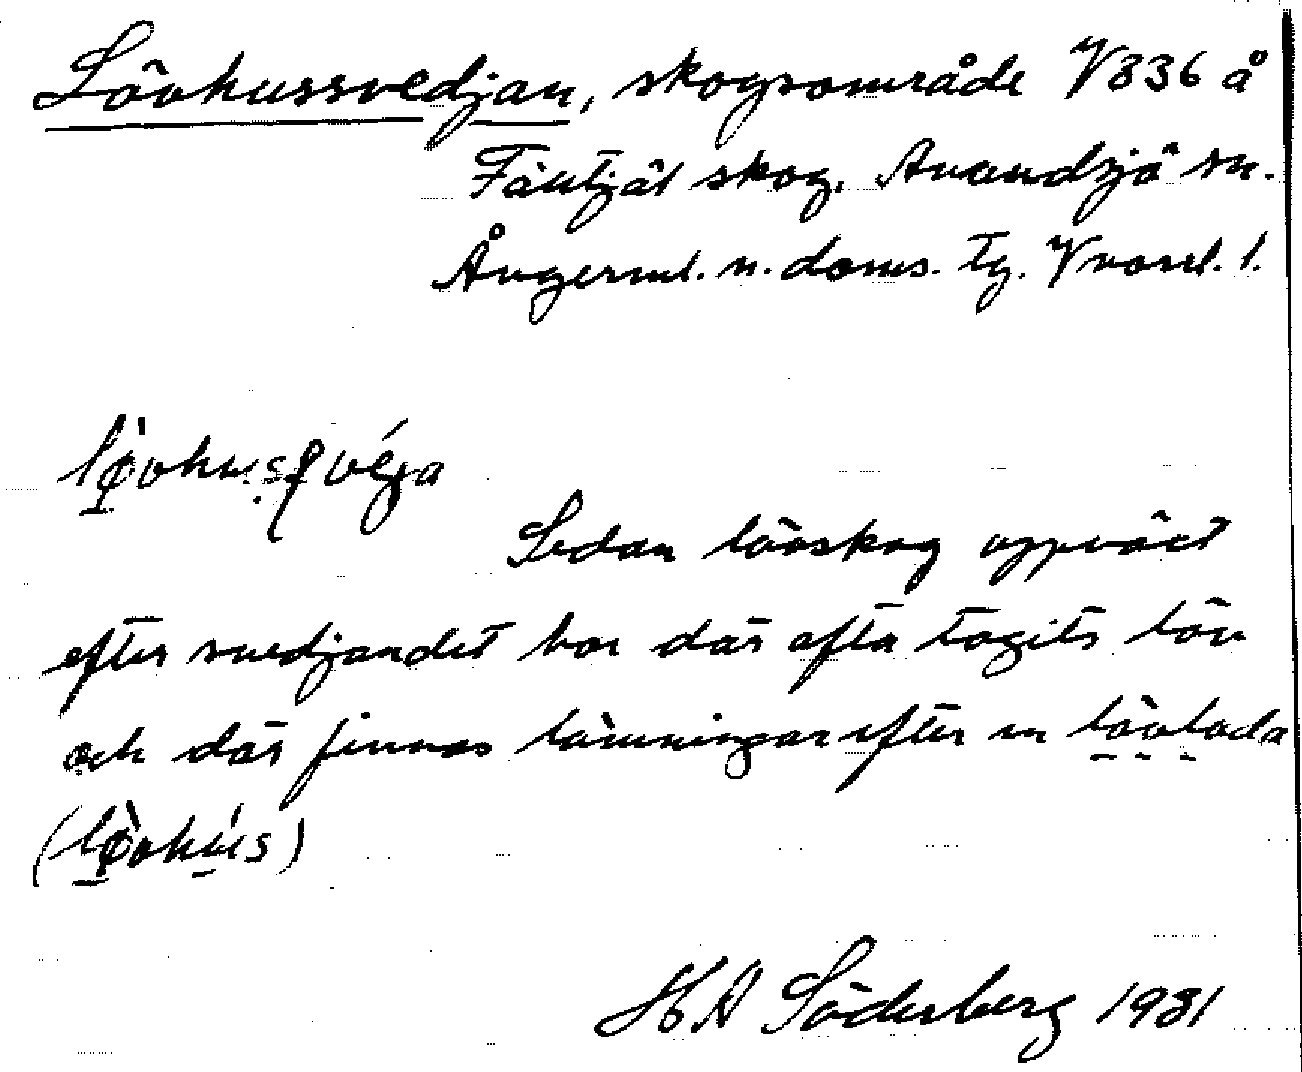 Lövhussvedjan, skogsområde V336 å
Fäbtjäl skog, Anundsjö sn.
Ångerml. n. doms. tg. Vnorrl. l.
lövhus
Sedan lövskog uppväxt
efter svedjandet har där ofta tagits löv
och där finnas lämningar efter en lövlada
(løvhus)
HA Söderberg 1931